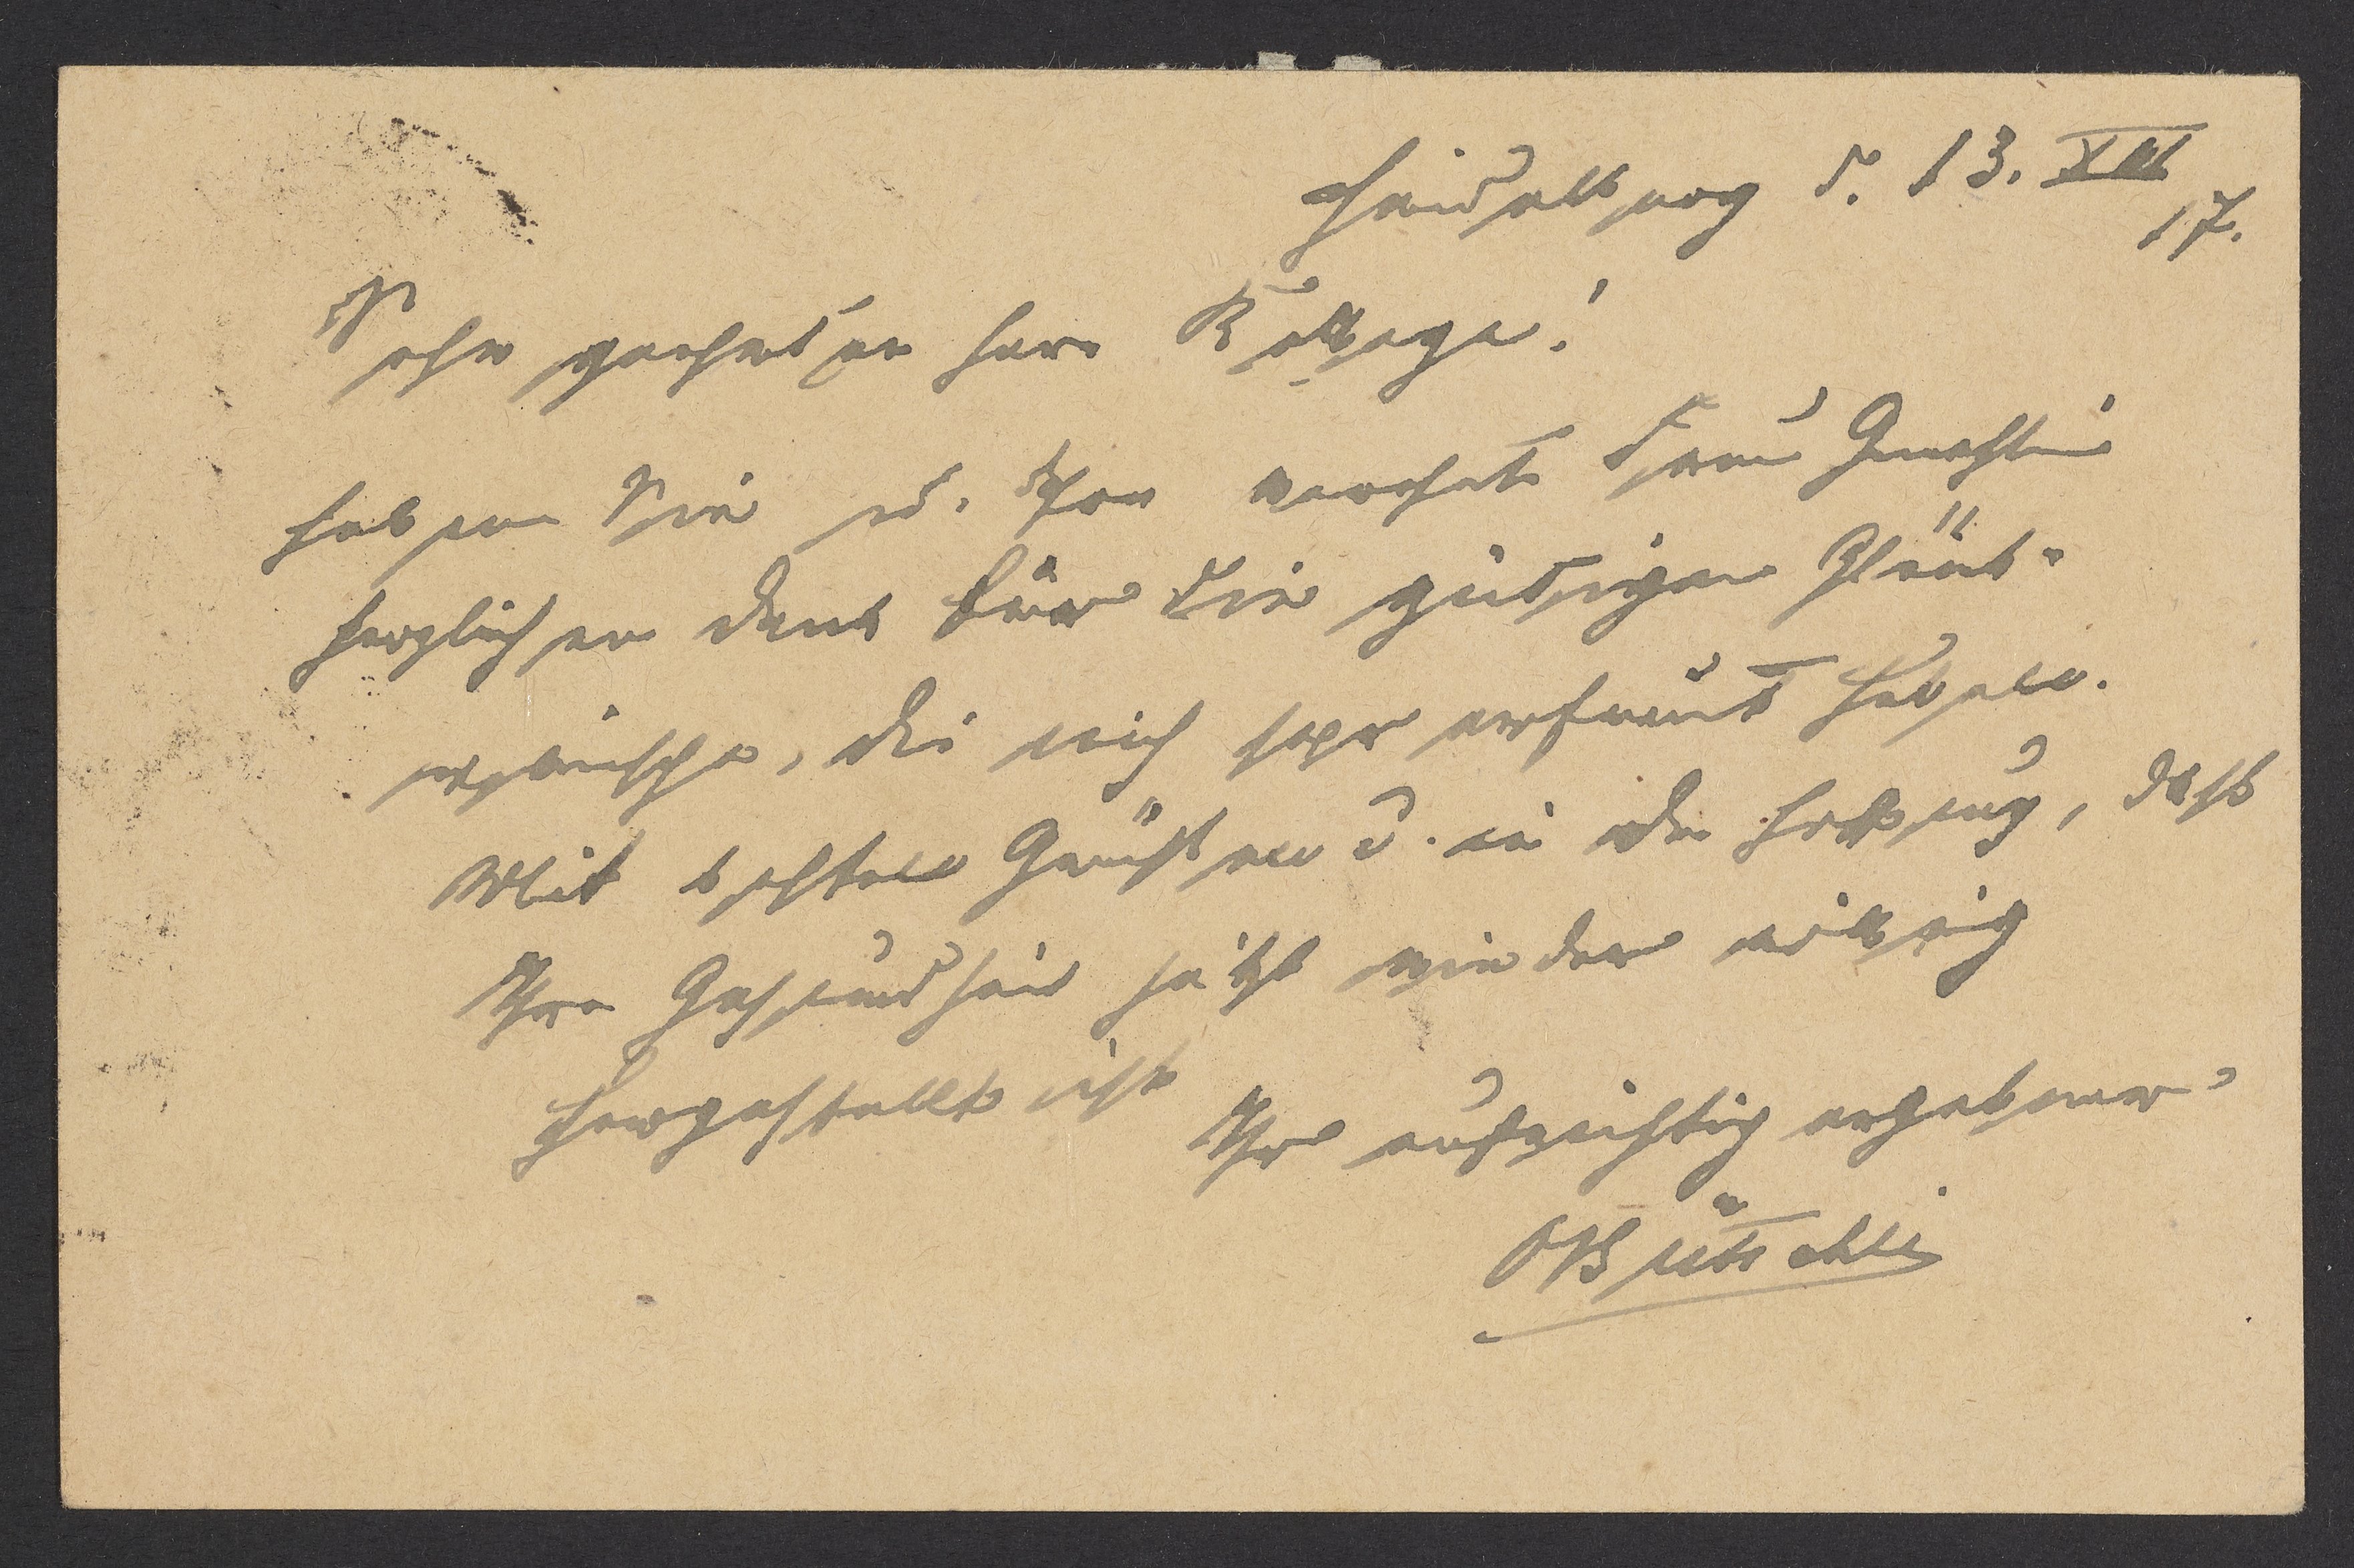 Heidelberg d. 13. XII
17.
Sehr geehrter Herr Kollege!
Haben Sie u. Ihre verehrte Frau Gemahlin
herzlichen Dank für die gütigen Glück-
wünsche, die mich sehr erfreut haben.
Mit besten Grüßen u. in der Hoffnung, daß
Ihre Gesundheit jetzt wieder völlig
hergestellt ist
Ihr aufrichtig ergebener
O Bütschli